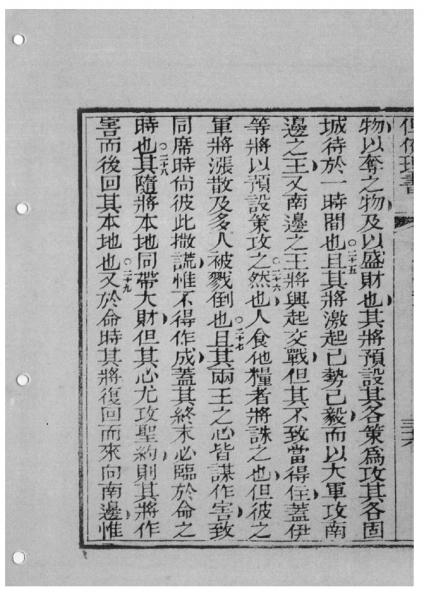 物以奪之物及以盛財也其將預設其各策為攻其各固
城待於一時間也○二十五且其將激起己勢己毅而以大軍攻南
邊之王又南邊之王將興起交戰但其不致當得住蓋伊
等將以預設策攻之然也○二十六人食他糧者將誅之也但彼之
軍將漲散及多人被戮倒也○二十七且其兩王之心皆謀作害致
同席時尚彼此撒謊惟不得作成蓋其終末必臨於命之
時也○二十八其隨將本地同帶大財但其心尤攻聖約則其將作
害而後回其本地也○二十九又於命時其將復回而來向南邊惟